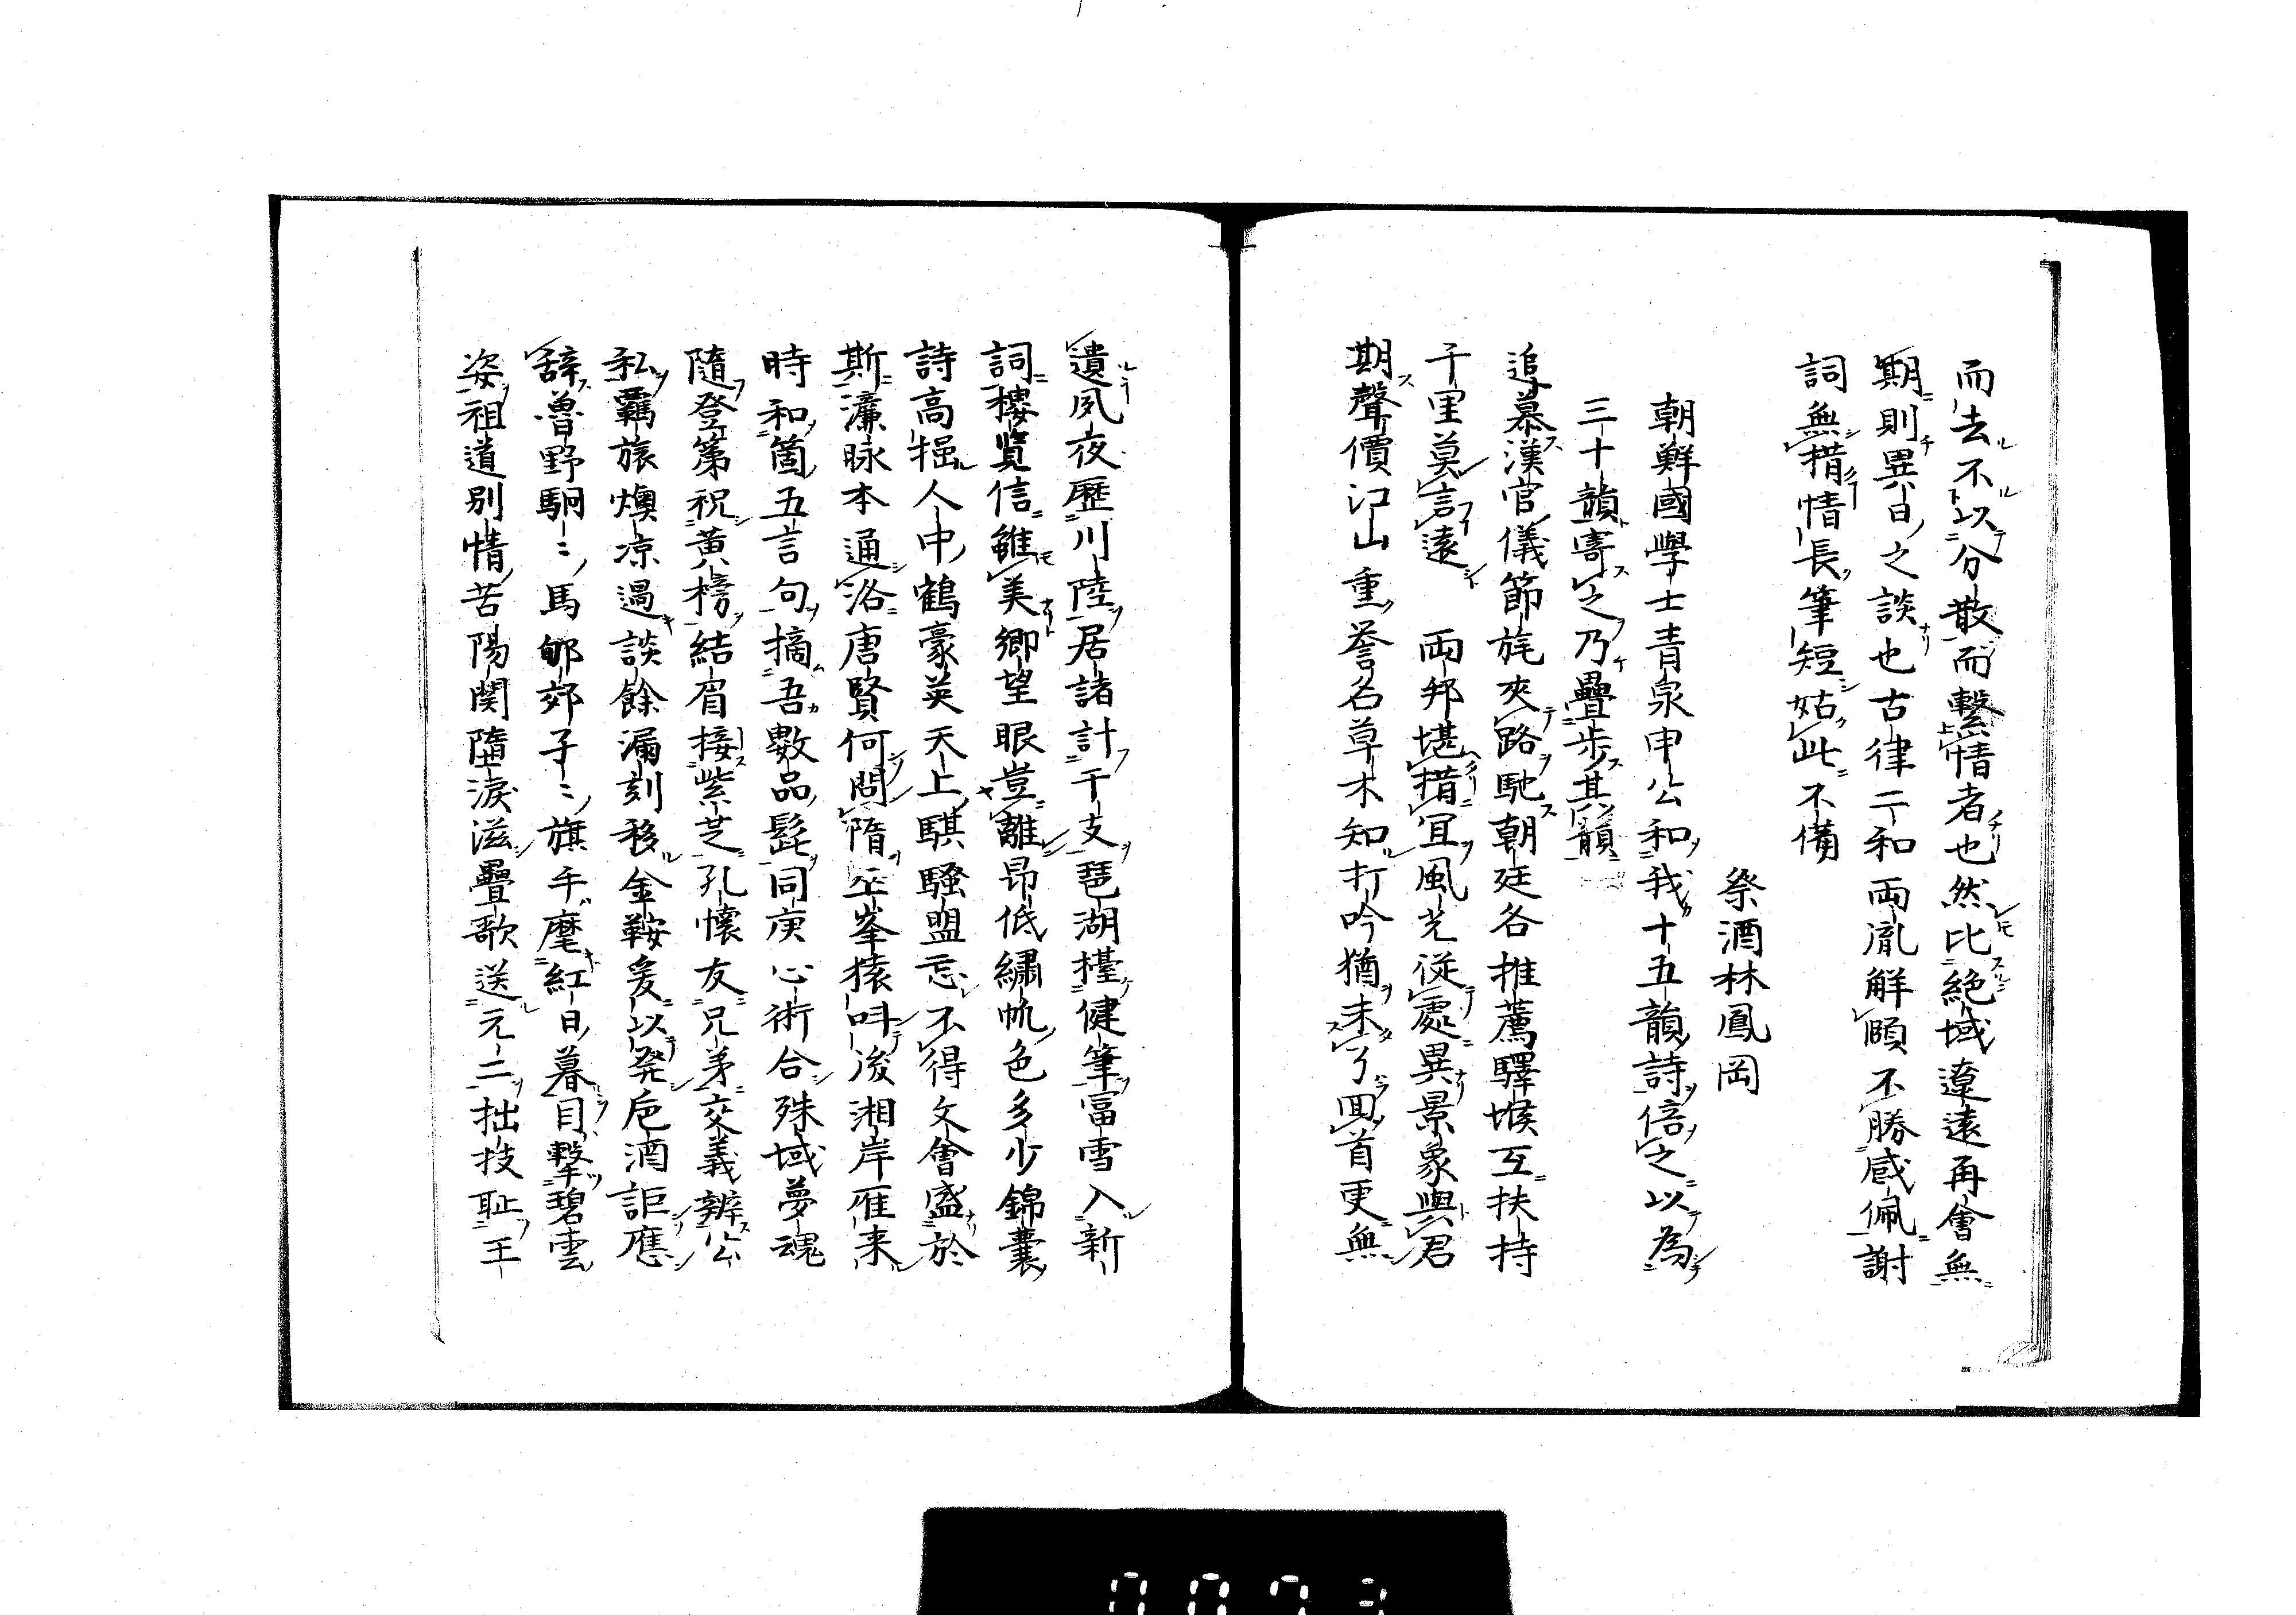 而去不以分散而繫情者也然比絶域遼遠再會無
期則異日之談也古律二和兩胤解頤不勝感佩謝
詞無措情長筆短姑此不備
祭酒林鳳岡
朝鮮國學士青泉申公和我十五韻詩倍之以為
三十韻寄之乃疊步其韻
追慕漢官儀節旄夾路馳朝廷各推薦驛堠互扶持
千里莫言遠 兩邦堪措冝風光從處異景象與君
期聲價江山重誉名草木知打吟猶未了回首更無
遺夙夜歷川陸居諸計干支琶湖擡健筆富雪入新
詞樓覧信雖美郷望眼豈離昂低繡帆色多少錦囊
詩高挹人中鶴豪英天上騏騷盟忘不得文會盛於
斯濂脉本通洛唐賢何問隋巫峯猿叫後湘岸雁来
時和箇五言句摘吾數品髭同庚心術合殊域夢魂
隨登第祝黄榜結眉接紫芝孔懷友兄弟交義辨公
私羈旅燠凉過談餘漏刻移金鞍爰以発巵酒詎應
辞魯野駉〻馬郇郊孑〻旗手麾紅日暮目撃碧雲
姿祖道別情苦陽関墮淚滋疊歌送元二拙技耻王
0073